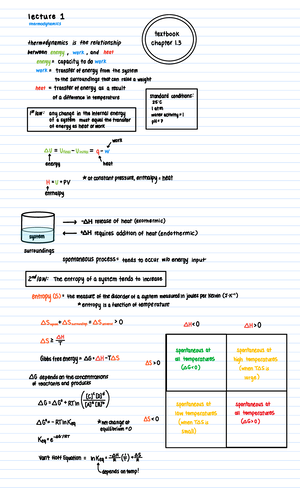 lecture 1
thermodynamics
textbook
chapter 1.3
thermodynamics is the relationship
between energy, work, and heat
energy = capacity to do work
work = transfer of energy from the system
to the surroundings that can raise a weight
heat = transfer of energy as a result
of a difference in temperature
standard conditions:
25°C
1 atm
water activity = 1
pH = 7
1st law: any change in the internal energy
of a system must equal the transfer
of energy as heat or work
ΔU = Ufinal - Uinitial = q - w
energy
heat
H = U + PV
* at constant pressure, enthalpy = heat
enthalpy
system
surroundings
→ -ΔH release of heat (exothermic)
→ +ΔH requires addition of heat (endothermic)
spontaneous process = tends to occur w/o energy input
2nd law: The entropy of a system tends to increase
entropy (S) = the measure of the disorder of a system measured in joules per Kelvin (J·K⁻¹)
* entropy is a function of temperature
ΔS + ΔS > 0
ΔH<0
ΔH>0
ΔS ≥ ΔH/T
Gibbs free energy = ΔG = ΔH - TΔS
ΔS>0
spontaneous at
all temperatures
(ΔG<0)
spontaneous at
high temperatures
(when TΔS is
large)
ΔG depends on the concentrations
of reactants and products
ΔG = ΔG° + RT ln ([C]ᶜ[D]ᵈ / [A]ᵃ[B]ᵇ)
ΔS<0
spontaneous at
low temperatures
(when TΔS is
small)
spontaneous at
all temperatures
(ΔG>0)
ΔG° = -RT ln Keq
* net change at
equilibrium = 0
Keq = e^-ΔG°/RT
Van't Hoff Equation = ln Keq = -ΔH°/R (1/T) + ΔS°/R
depends on temp!